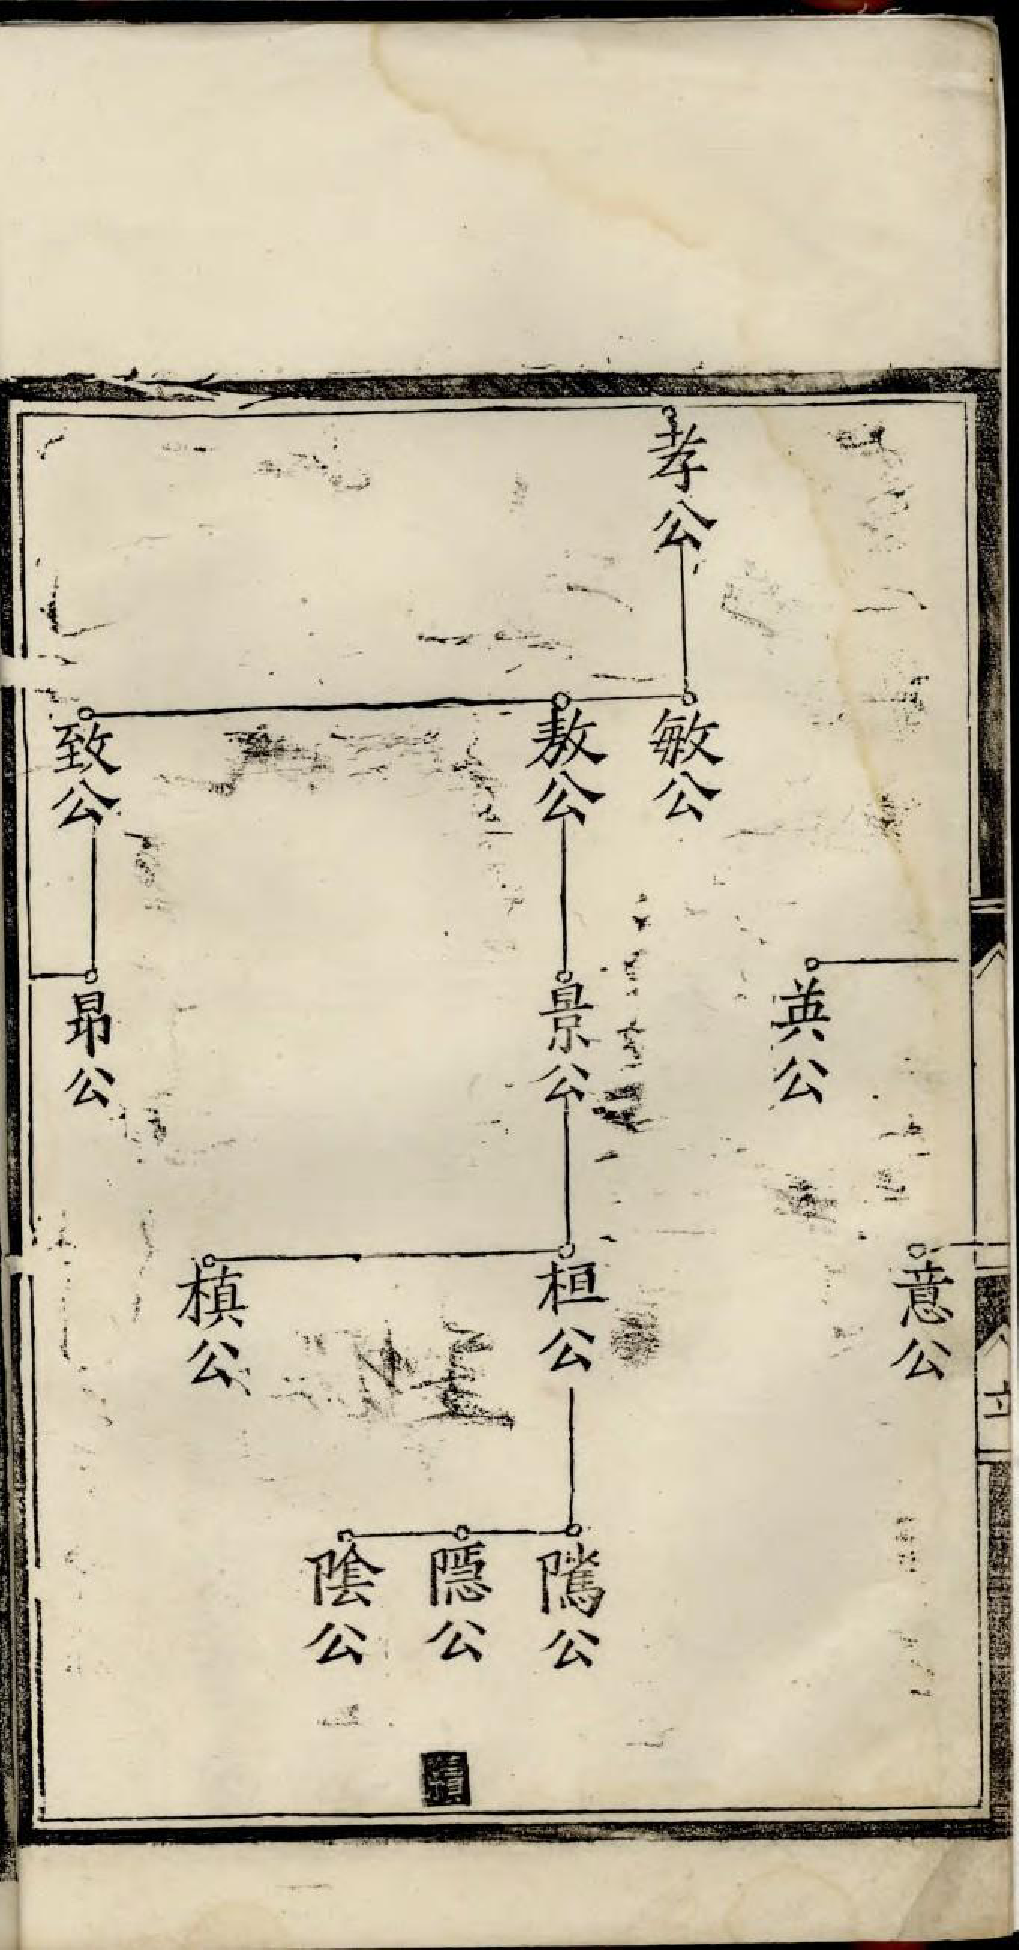 孝公
敏公
敖公
致公
英公
景公
昂公
意公
桓公
槙公
隲公
隱公
陰公